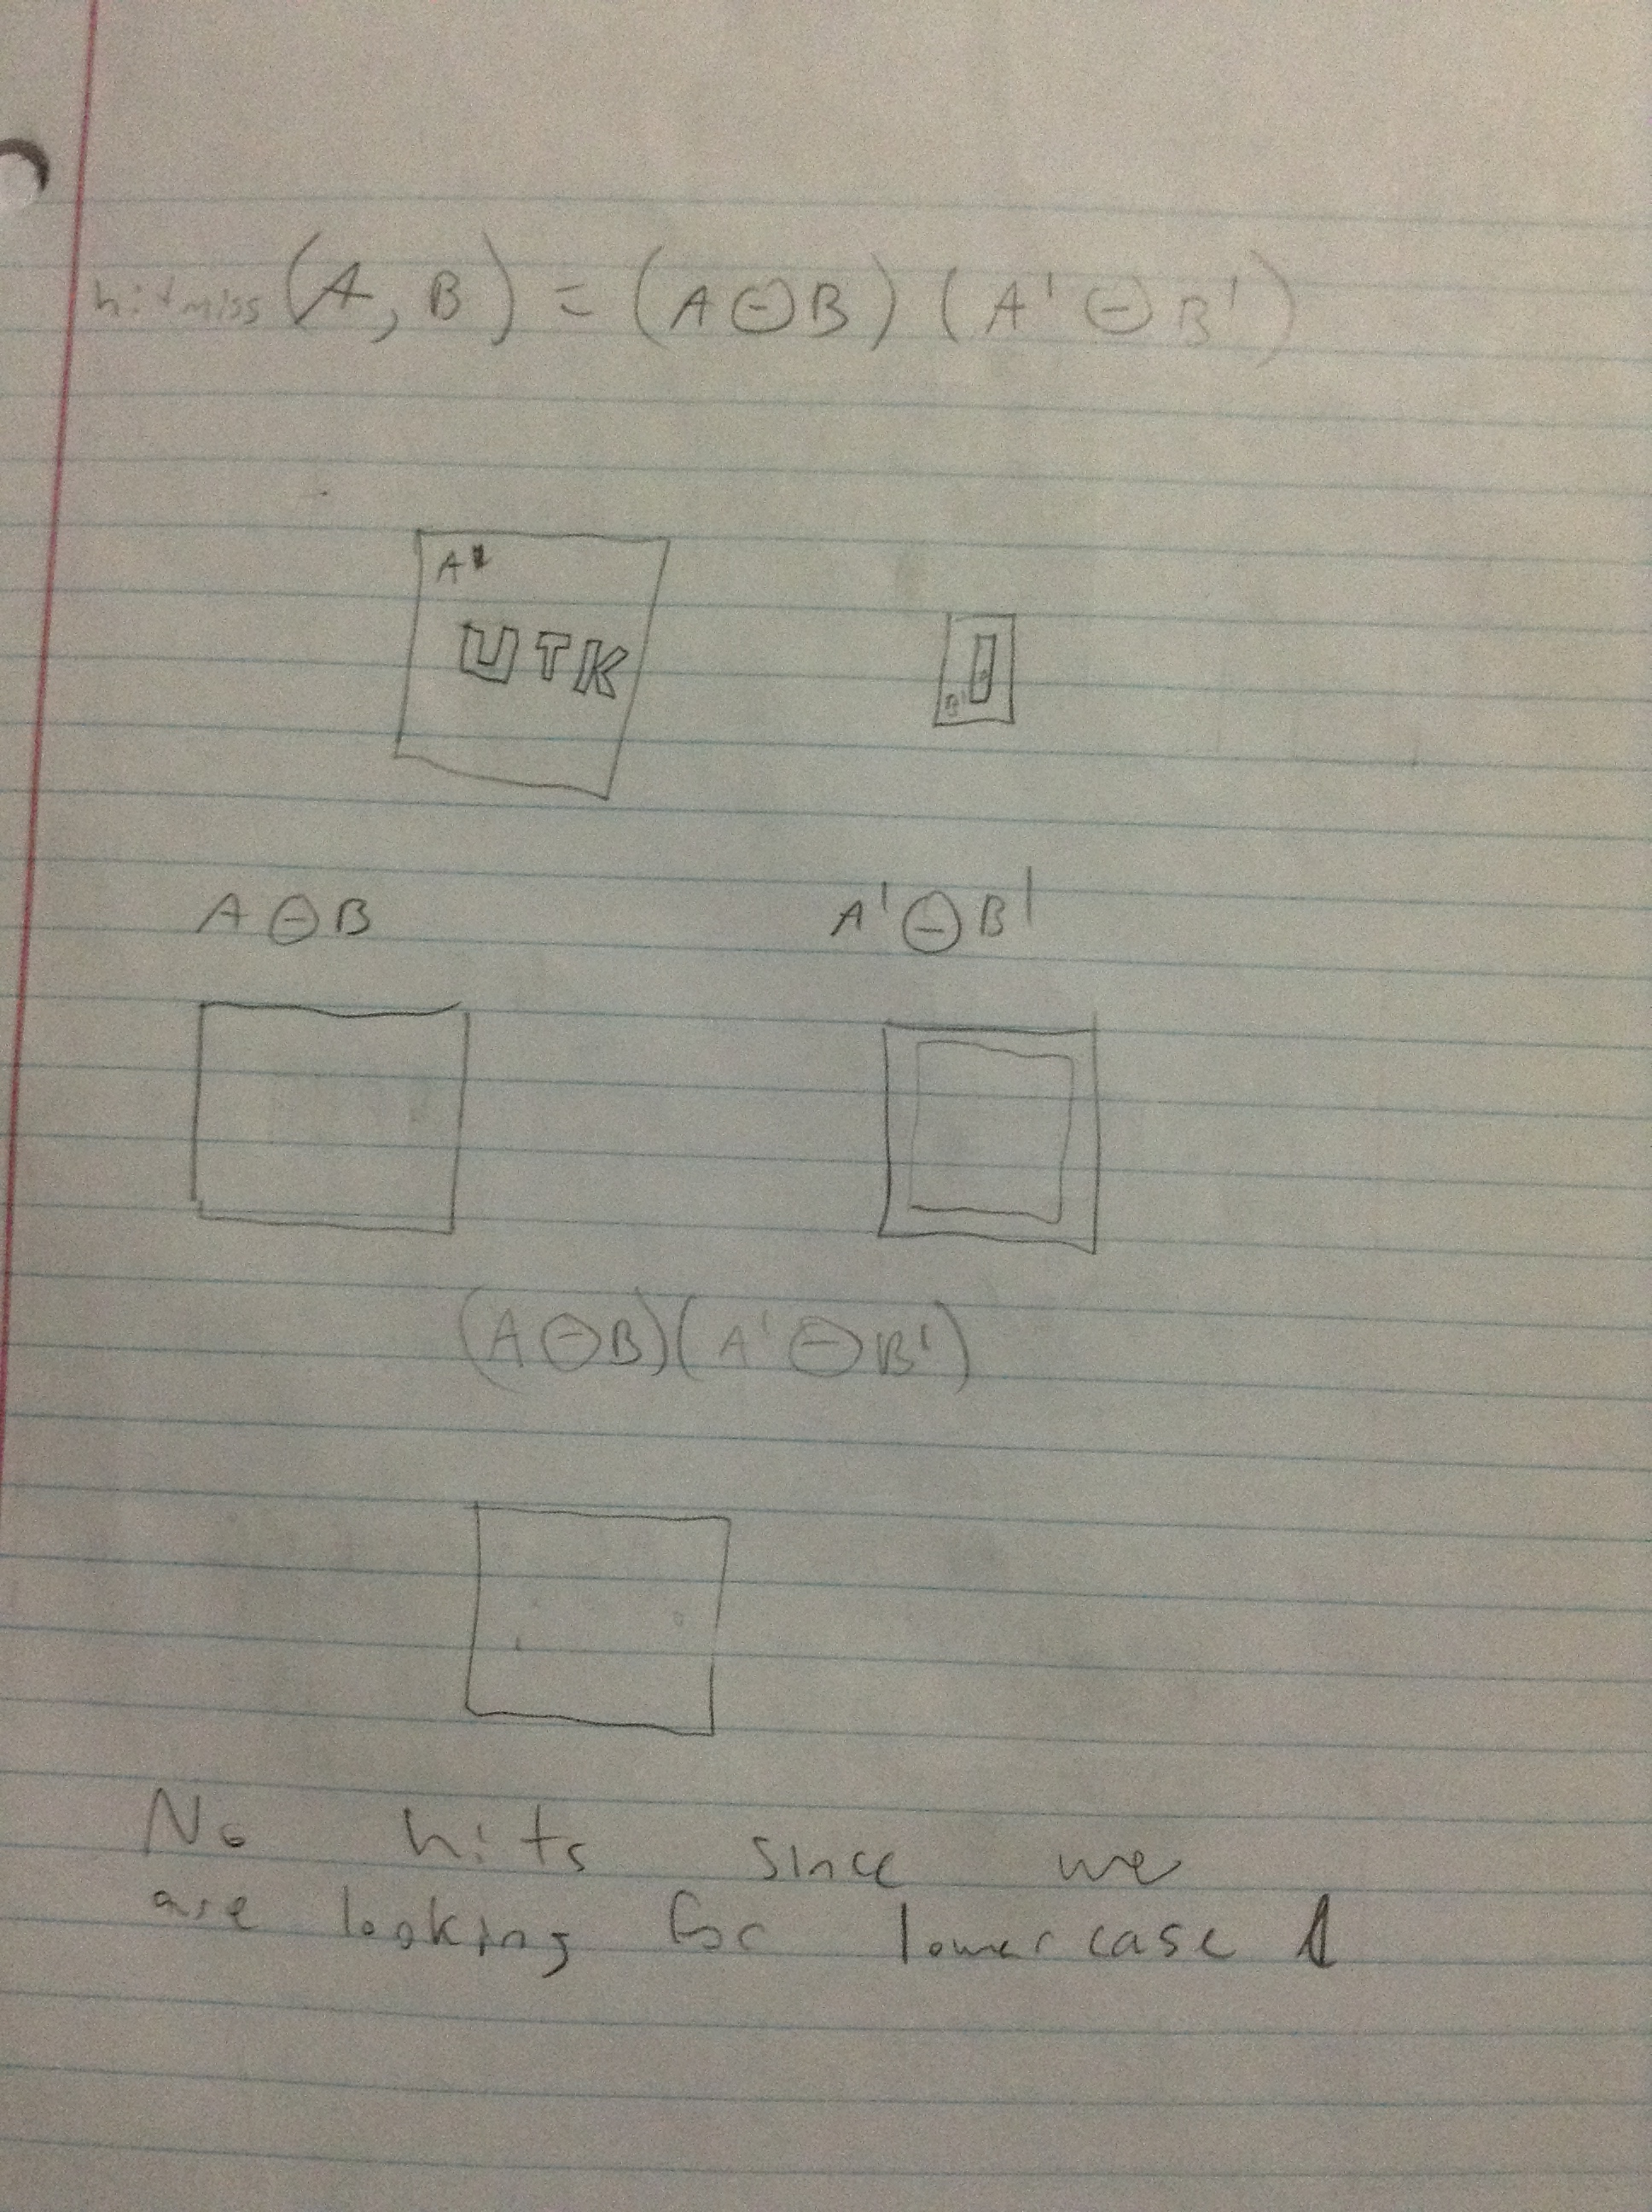 hitmiss (A, B) = (A⊖B) (A' ⊖ B')
A
UTK
B'
A⊖B A'⊖B'
(A⊖B)(A'⊖B')
No hits since we
are looking for lowercase l